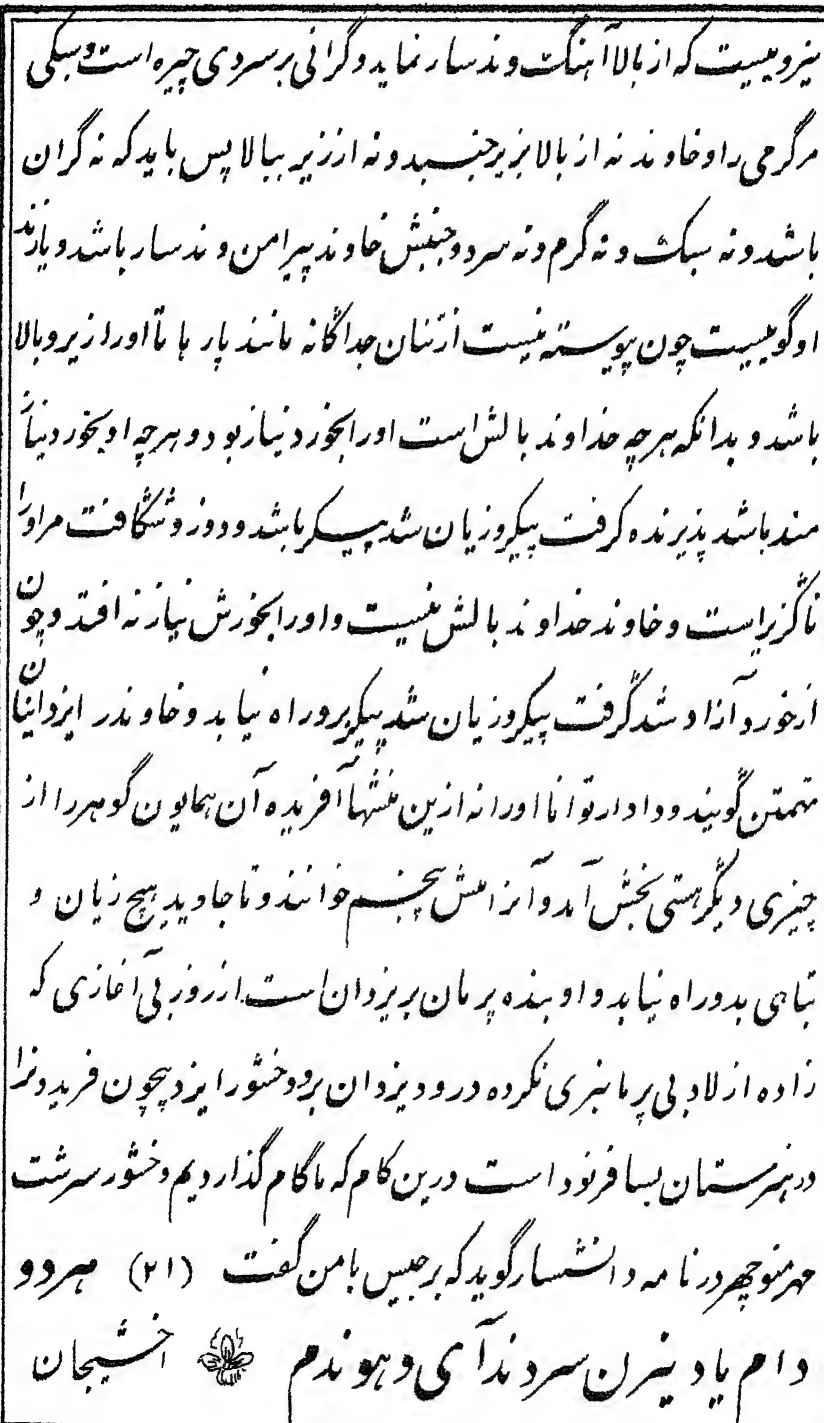 نیرویست که از بالا آهنگ وندسار نماید و گرانی بر سردی چیره است و سبکی
مر گرمی را و خاوند نه از بالا بزیر جنبد و نه از زیر ببالا پس باید که نه گران
باشد و نه سبک و نه گرم و نه سرد و جنبش خاوند پیرامن وندسار باشد و یازند
او گویست چون پیوسته نیست از تنان جداگانه مانند پارها تا او را زیر و بالا
باشد و بدانکه هر چه خداوند بالش است او را بخورد نیاز بود و هرچه او بخورد نیاز
مند باشد پذیرنده گرفت پیکر و زیان شد پیکر باشد و دوز و شگافت مر او را
ناگزیر است و خاوند خداوند بالش نیست و او را بخورش نیاز نه افتد و چون
از خورد آزاد شد گرفت پیکر و زیان شد پیکر برو راه نیابد و خاوند را ایزدانیان
تهمتن گویند و دادار توانا او را نه ازین منشها آفریده آن همایون گوهر را از
چیزی دیگر هستی بخش آمد و آنرا منش پنجم خوانند و تا جاوید هیچ زیان و
تباهی بدو راه نیابد و او بنده پرمان بر یزدان است از روز بی آغازی که
زاده از لاد بی پرمانبری نکرده درود یزدان برو وخشور ایزد بیچون فریدون را
در هنرستان بسا فرنود است درین کام که ما گام گذاردیم وخشور سرشت
مهر منوچهر در نامه دانشسار گوید که برجیس با من گفت (۲۱) هردو
دام یاد ینرن سردند آی و هوندم اخشیجان